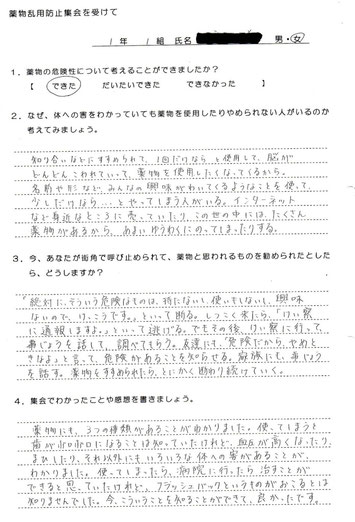 薬物乱用防止集会を受けて
1年 1組 氏名 男・女
1．薬物の危険性について考えることができましたか？
【 できた だいたいできた できなかった 】
2．なぜ、体への害をわかっていても薬物を使用したりやめられない人がいるのか
考えてみましょう。
知り合いなどにすすめられて、1回だけなら と使用して、脳が
どんどんこわれていって、薬物を使用したくなってくるから。
名前や形など、みんなの興味がわいてくるようなことを使って、
少しだけなら…とやってしまう人がいる。インターネット
など身近なところに売っていたり、この世の中には、たくさん
薬物があるから、あまいゆうわくにのってしまったりする。
3．今、あなたが街角で呼び止められて、薬物と思われるものを勧められたとした
ら、どうしますか？
「絶対に、そういう危険なものは、持たないし、使いもしないし、興味
ないので、けっこうです。」といって断る。しつこく来たら、「けい察
に通報しますよ。」といって逃げる。でもその後、けい察に行って、
事じょうを話して、調べてもらう。友達にも、「危険だから、やめと
きなよ」と言って、危険があることを知らせる。家族にも、事じょう
を話す。薬物をすすめられたら、とにかく断わり続けていく。
4．集会でわかったことや感想を書きましょう。
薬物にも、3つの種類があることが分かりました。使ってしまうと
歯がボロボロになることは知っていたけれど、血圧が高くなったり、
まひしたり、それ以外にもいろいろな体への害があることが、
わかりました。使ってしまったら、病院に行ったら治すことが
できると思っていたけれど、フラッシュバックというものがおこるとは
知りませんでした。今、こういうことを知ることができて、良かったです。